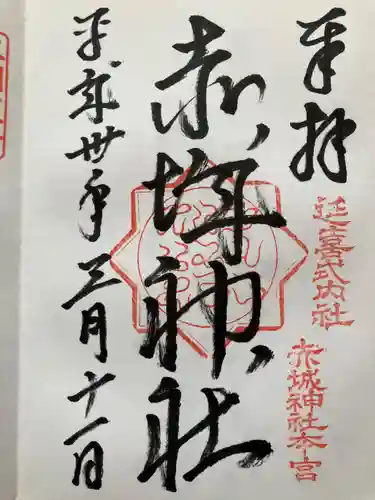 奉拝
延喜式内社
赤城神社本宮
赤城神社
平成卅年三月十一日